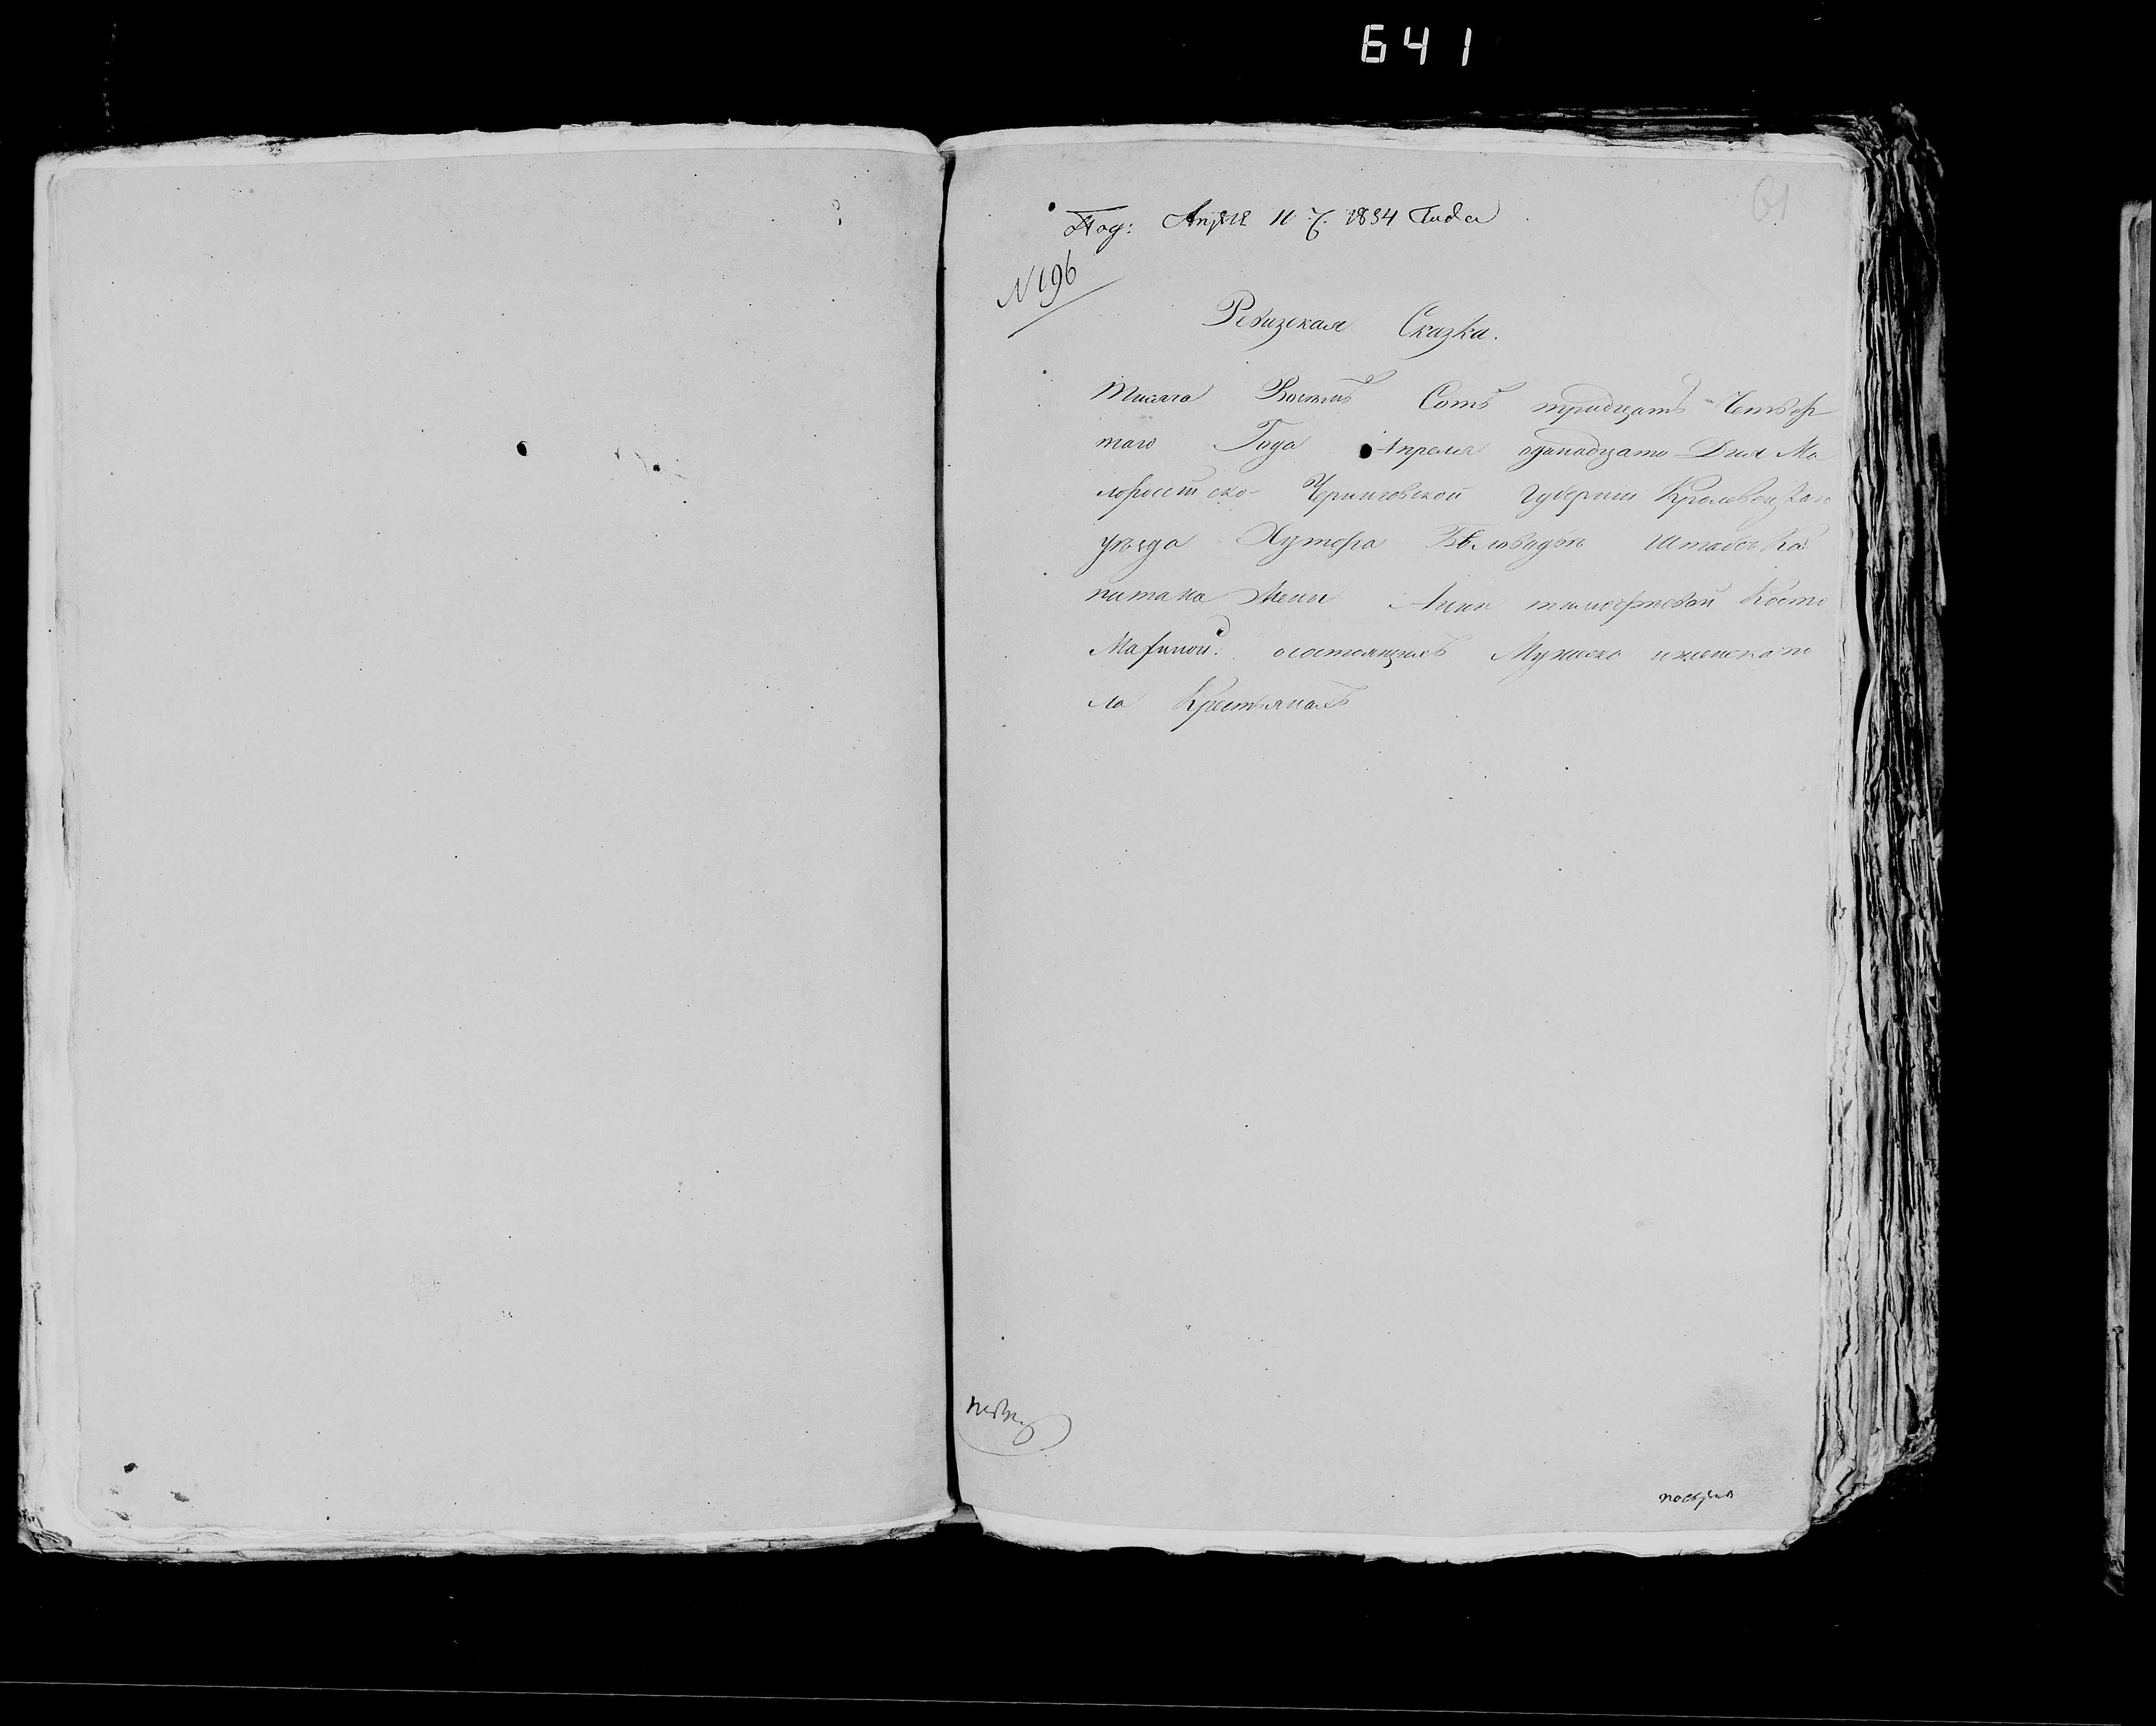 641
61
Под: Апреля 11 ч. 1834 Года
N 196
Ревизская Сказка.
Тисяча Восемъ Сотъ тридцатъ Четвер
таго Года Апреля одинадцато Дня Ма
лоросийско Черниговской Губернии Кролевецкаго
уезда Хутора Штабсъ Ка
питана Жены Анни тимофеевой Косто
Мариной. осостоящихъ Мужеска иженска по
ла Крестьянахъ